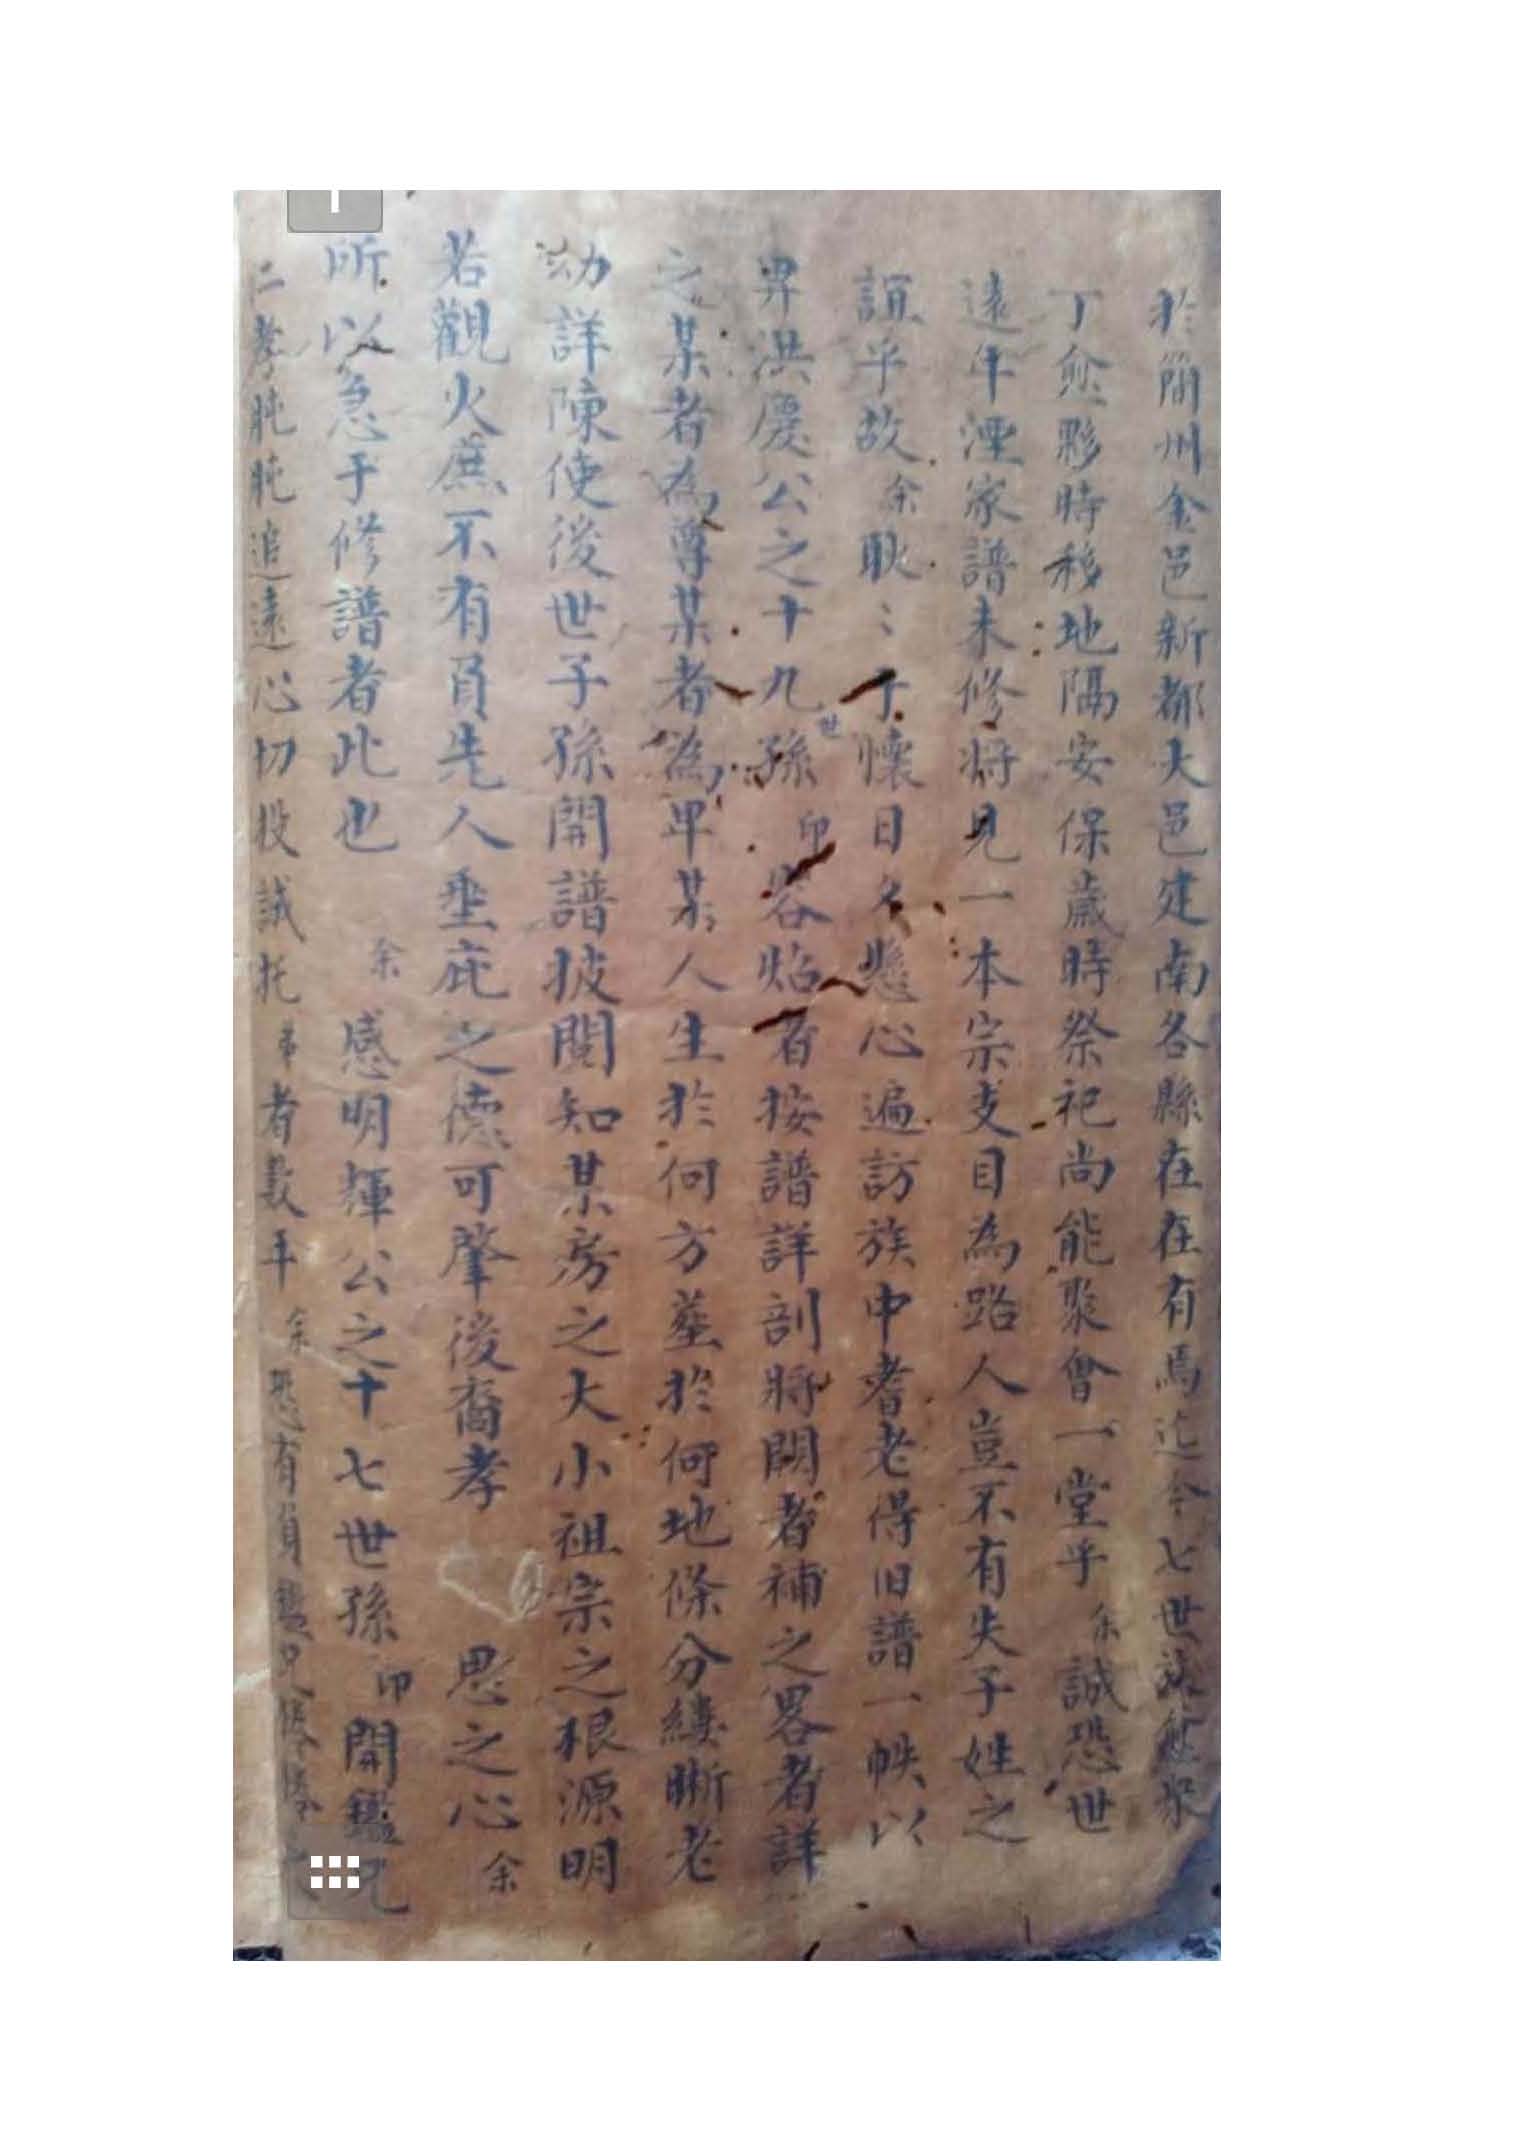 於簡州金邑新都大邑建南各縣在在有焉迄今七世族愈衆
丁愈夥時移地隔安保歲時祭祀尚能聚會一堂乎余誠恐世
遠年湮家譜未修将見一本宗支目為路人豈不有失子姓之
誼乎故余耿〻于懷日久懸心遍訪族中耆老得旧譜一帙以
畀洪慶公之十九世孫印容焰者按譜詳剖將闕者補之畧者詳
之某者為尊某者為卑某人生於何方塟於何地條分縷晰老
幼詳陳使後世子孫開譜披閱知某房之大小祖宗之根源明
若觀火庶不有負先人垂庇之德可肇後裔孝思之心余
所以急于修譜者此也余感明輝公之十七世孫印開鑑兄
二孝肫肫追遠心切投誠托事者数年余恐有負鑑兄